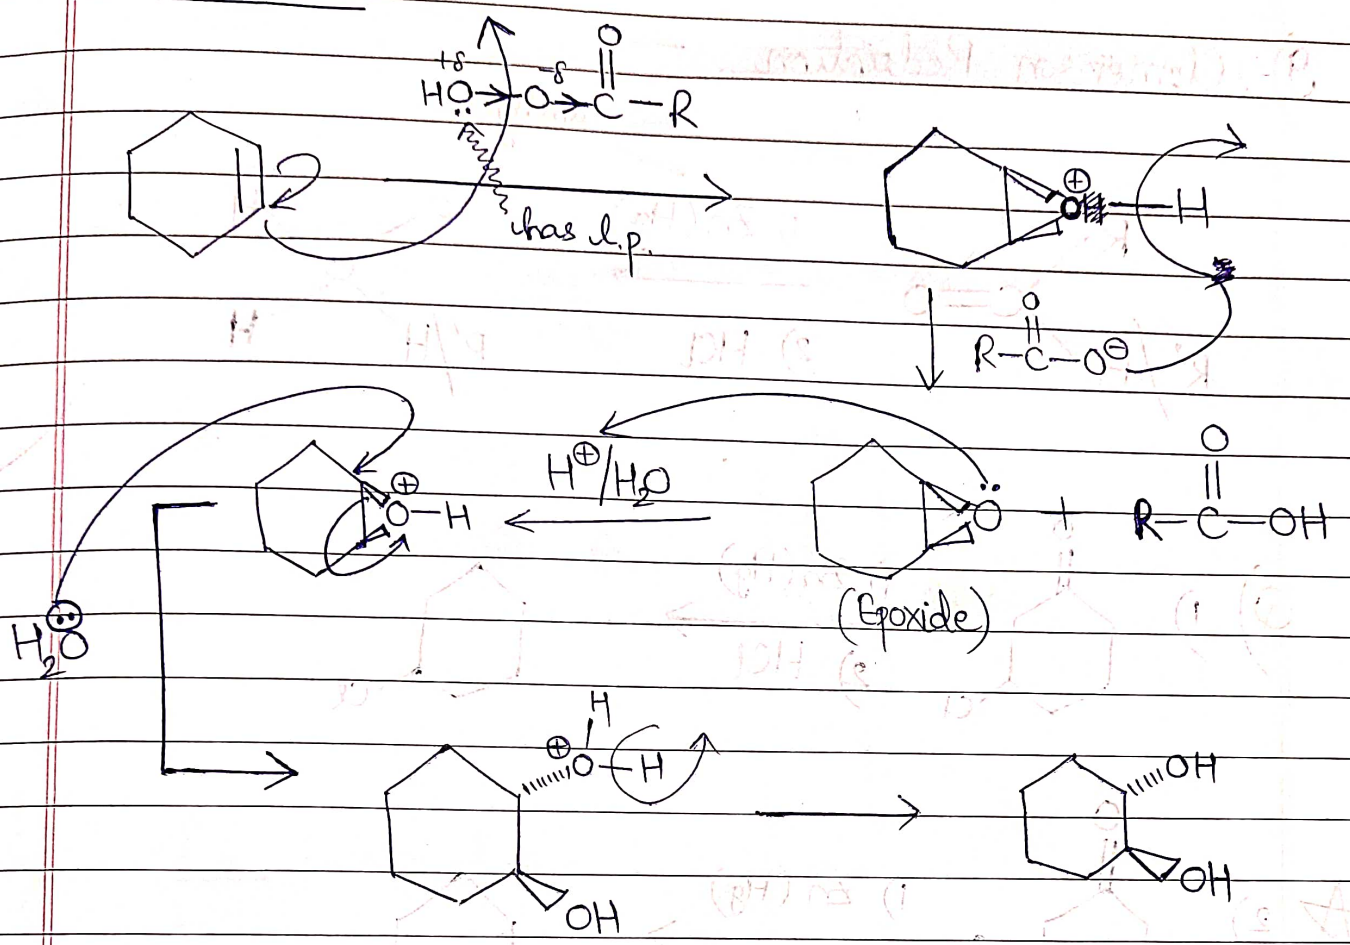 O
+δ -δ
HO O C R
has l.p.
⊕
O H
O
R-C-O⊖
H⊕/H₂O
⊕
O-H
O + R-C-OH
O
(Epoxide)
H₂O
H
⊕
O-H
OH
OH
OH